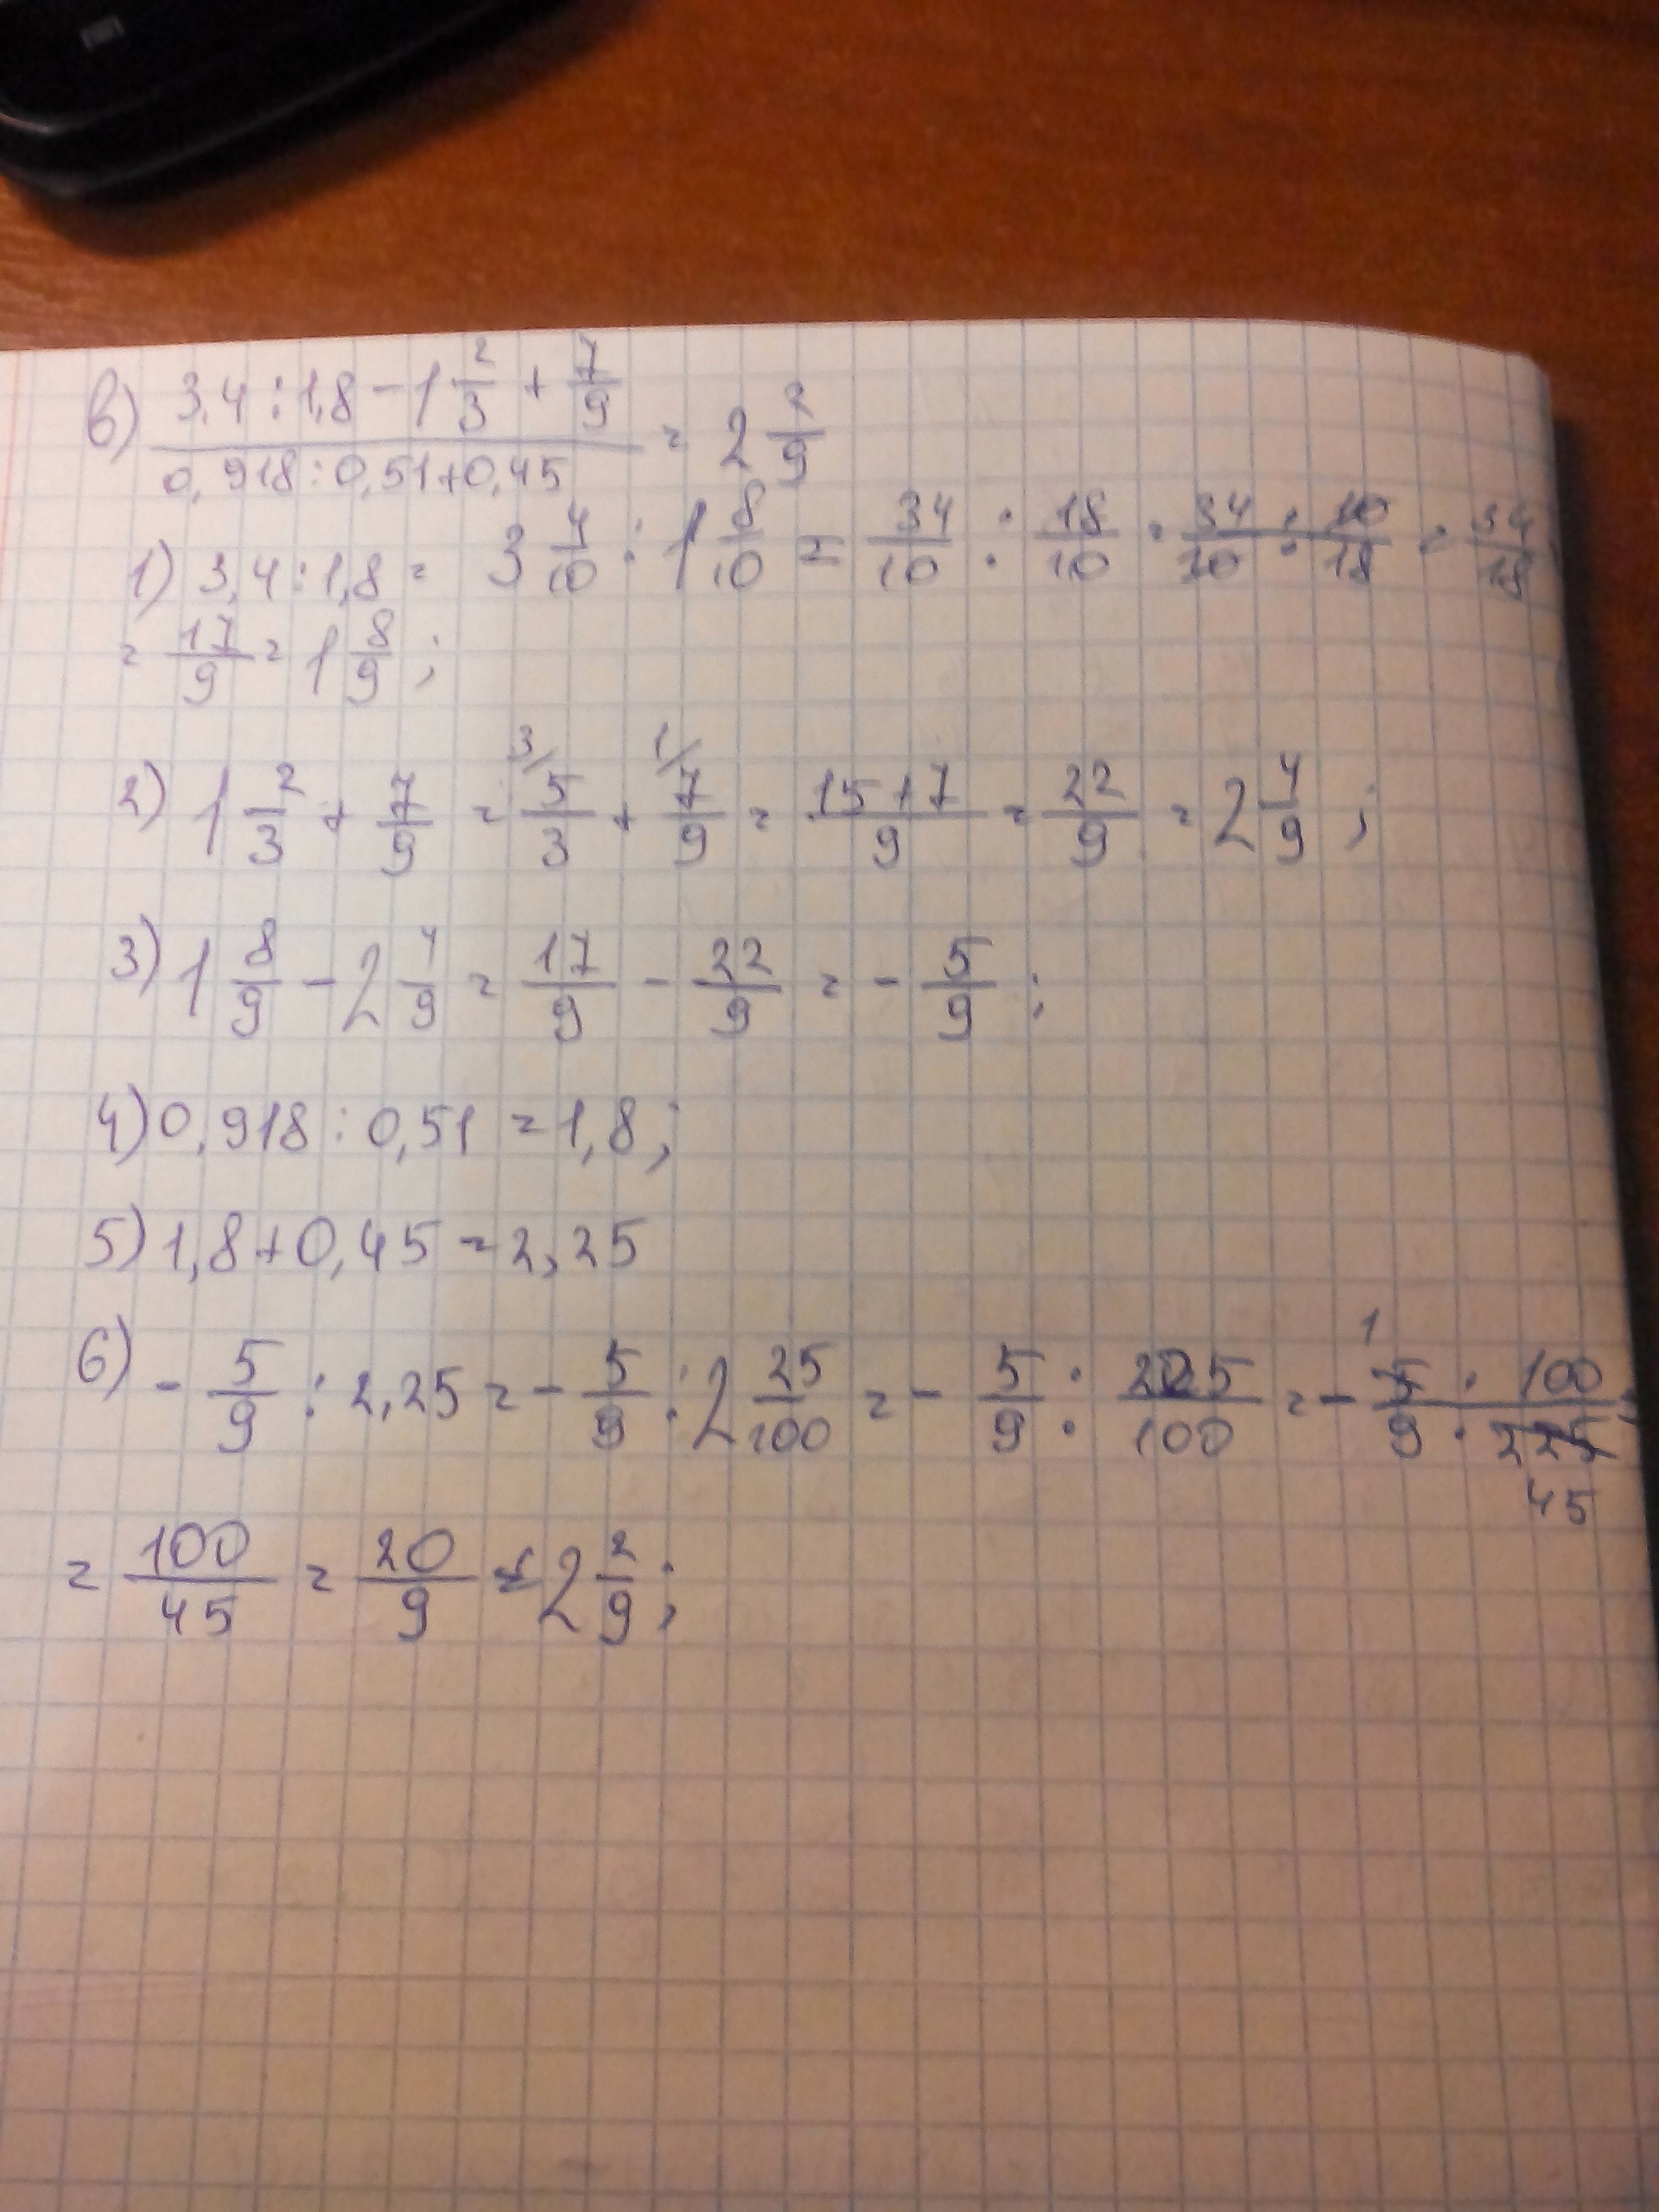 в) (3,4 : 1,8 - 1 2/3 + 7/9) / (0,918 : 0,51 + 0,45) = 2 2/9
1) 3,4 : 1,8 = 3 4/10 : 1 8/10 = 34/10 : 18/10 = 34/10 · 10/18 = 34/18
= 17/9 = 1 8/9 ;
2) 1 2/3 + 7/9 = 3/ 5/3 + 1/ 7/9 = (15+7)/9 = 22/9 = 2 4/9 ;
3) 1 8/9 - 2 4/9 = 17/9 - 22/9 = - 5/9 ;
4) 0,918 : 0,51 = 1,8 ;
5) 1,8 + 0,45 = 2,25
6) - 5/9 : 2,25 = - 5/9 : 2 25/100 = - 5/9 : 225/100 = - (5 · 100)/(9 · 225) =
1
45
= 100/45 = 20/9 = 2 2/9 ;